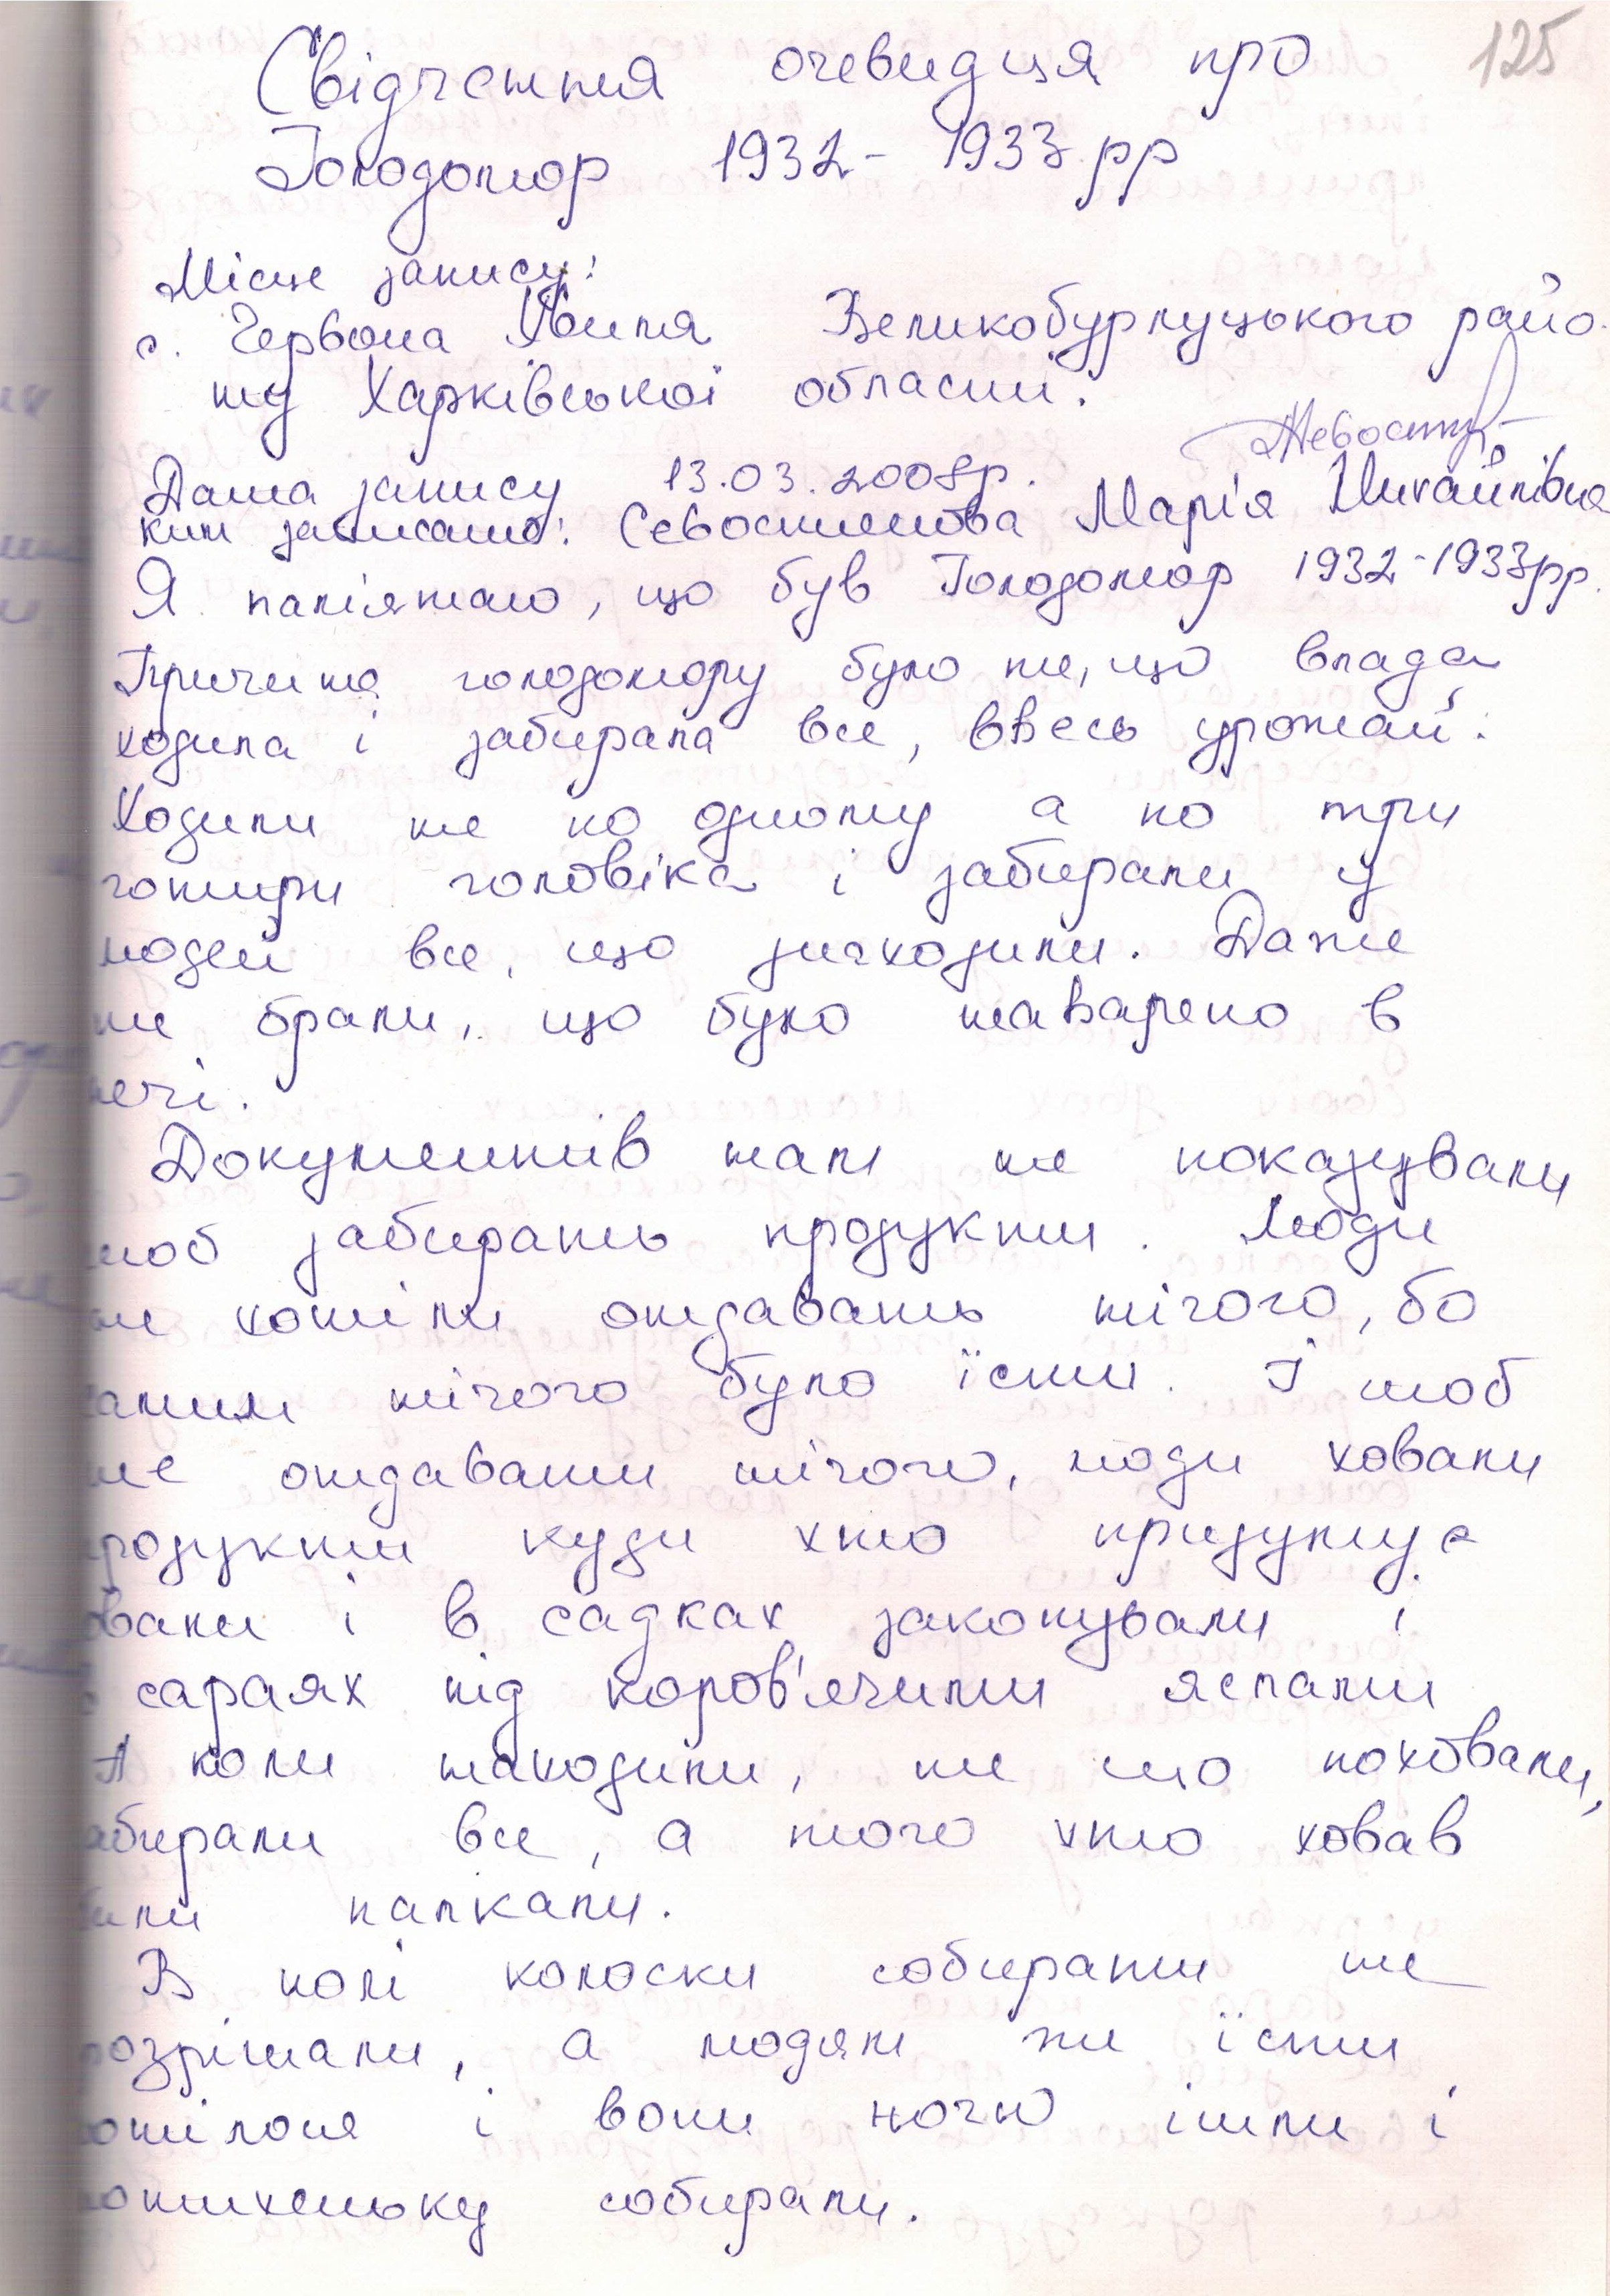 125
Свідчення очевидця про
Голодомор 1932-1933 рр
Місце запису:
с. Червона Хвиля Великобурлуцького райо-
ну Харківської області.
Дата запису 13.03.2008р.
ким записано: Марія Михайлівна
Я пам'ятаю, що був Голодомор 1932-1933рр.
Причина голодомору було те, що влада
ходила і забирала все, ввесь урожай.
Ходили не по одному а по три
чотири чоловіка і забирали у
людей все, що знаходили. Даже
те брали, що було наварено в
печі.
Документів нам не показували
шоб забирать продукти. Люди
не хотіли отдавать нічого, бо
самим нічого було їсти. І шоб
не отдавати нічого, люди ховали
продукти куди хто придумує
ховали і в садках закопували і
в сараях під коров'ячими яслами
А коли находили, те шо поховали,
забирали все, а того хто ховав
били палками.
В полі колоски собирати не
розрішали, а людям же їсти
хотілося і вони ночю ішли і
потихеньку собирали.